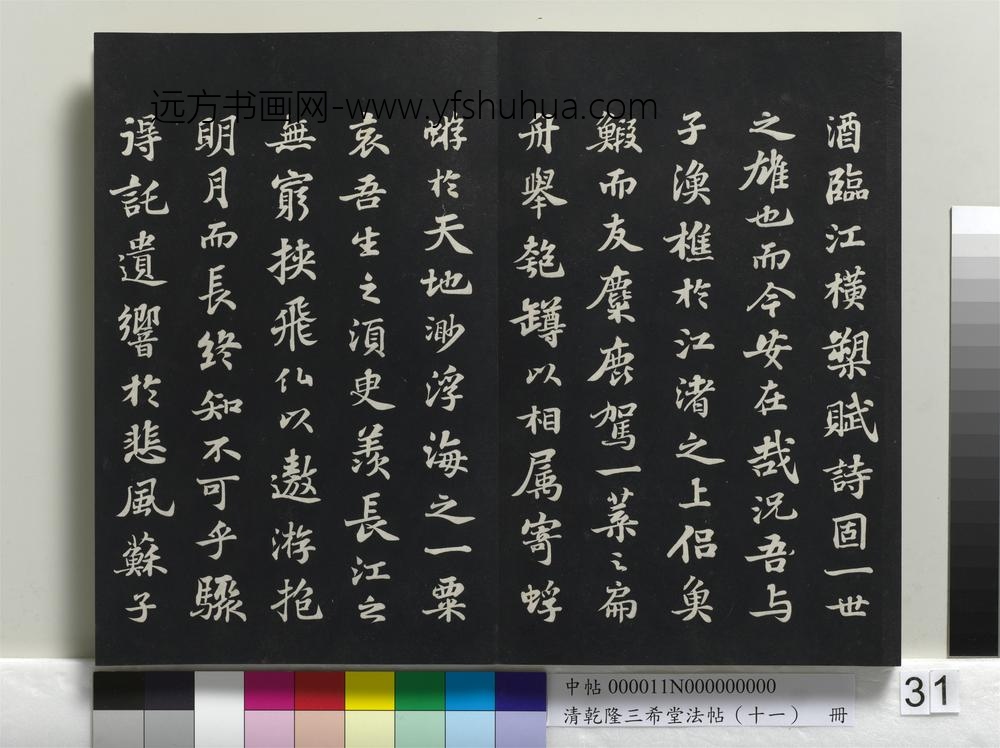 远方书画网-www.yfshuhua.com
酒臨江橫槊賦詩固一世
之雄也而今安在哉況吾与
子漁樵於江渚之上侶魚
鰕而友麋鹿駕一葉之扁
舟舉匏罇以相属寄蜉
蝣於天地渺浮海之一粟
哀吾生之須臾羨長江之
無窮挾飛仙以遨游抱
明月而長終知不可乎驟
得託遺響於悲風蘇子
中帖 000011N000000000
清乾隆三希堂法帖（十一） 冊
31